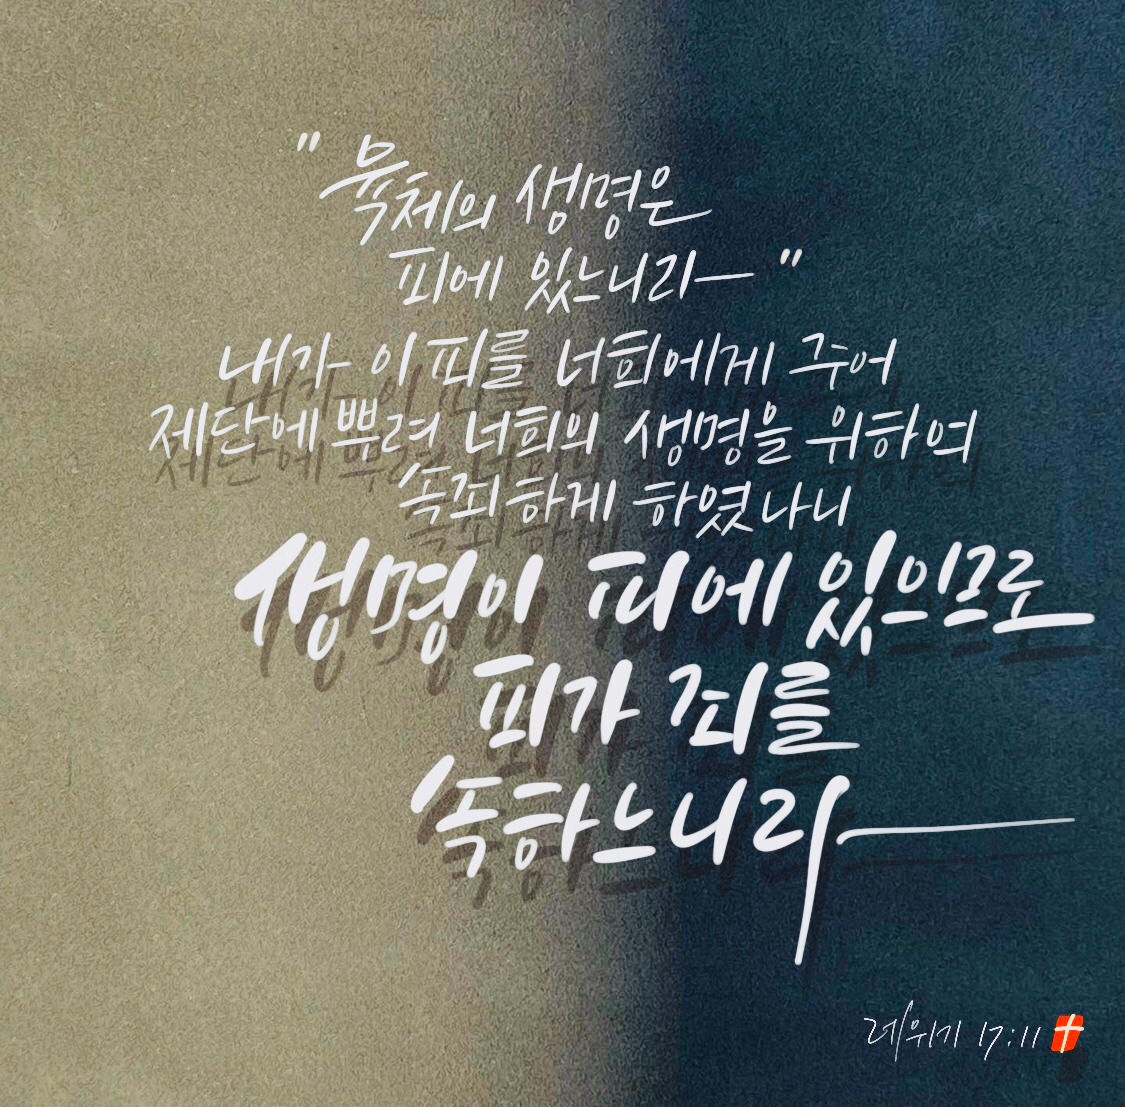 "육체의 생명은
피에 있느니라"
내가 이 피를 너희에게 주어
제단에 뿌려 너희의 생명을 위하여
속죄하게 하였나니
생명이 피에 있으므로
피가 죄를
속하느니라
레위기 17:11